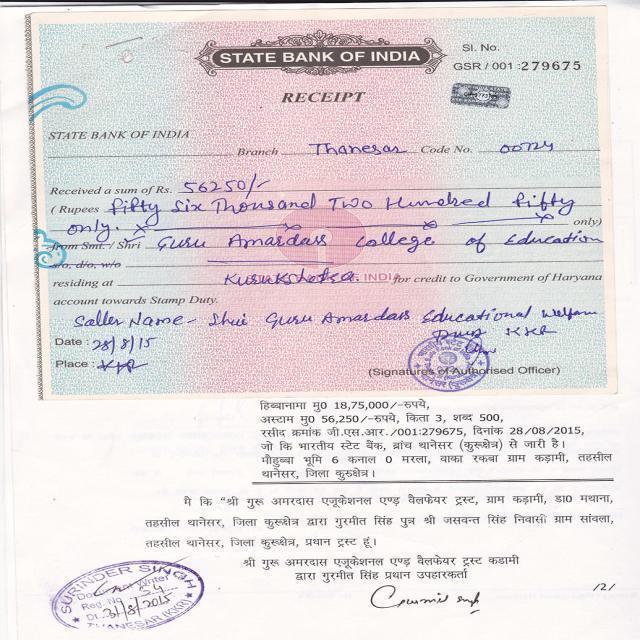 STATE BANK OF INDIA
Sl. No.
GSR / 001 : 279675
RECEIPT
STATE BANK OF INDIA
Branch Thanesar Code No. 00724
Received a sum of Rs. 56250/-
( Rupees Fifty Six Thousand Two Hundred Fifty
only. only)
from Smt./ Shri Guru Amardass College of Education
s/o, d/o, w/o
residing at Kurukshetra. INDIA for credit to Government of Haryana
account towards Stamp Duty.
Saller Name - Shri Guru Amardass Educational Welfare
Trust KKR
Date : 28/8/15
Place : KKR
(Signatures of Authorised Officer)
हिब्बानामा मु0 18,75,000/-रुपये,
अस्टाम मु0 56,250/-रुपये, किता 3, शब्द 500,
रसीद क्रमांक जी.एस.आर./001:279675, दिनांक 28/08/2015,
जो कि भारतीय स्टेट बैंक, ब्रांच थानेसर (कुरूक्षेत्र) से जारी है।
मौहुब्बा भूमि 6 कनाल 0 मरला, वाका रकबा ग्राम कड़ामी, तहसील
थानेसर, जिला कुरुक्षेत्र।
मै कि "श्री गुरू अमरदास एजूकेशनल एण्ड वैलफेयर ट्रस्ट, ग्राम कड़ामी, डा0 मथाना,
तहसील थानेसर, जिला कुरूक्षेत्र द्वारा गुरमीत सिंह पुत्र श्री जसवन्त सिंह निवासी ग्राम सांवला,
तहसील थानेसर, जिला कुरूक्षेत्र, प्रधान ट्रस्ट हूं।
श्री गुरू अमरदास एजूकेशनल एण्ड वैलफेयर ट्रस्ट कडामी
द्वारा गुरमीत सिंह प्रधान उपहारकर्ता
SURINDER SINGH
Document Writer
Reg. No. 54
Dt. 31/8/2015
THANESAR (KKR)
Gurmit Singh
/2/